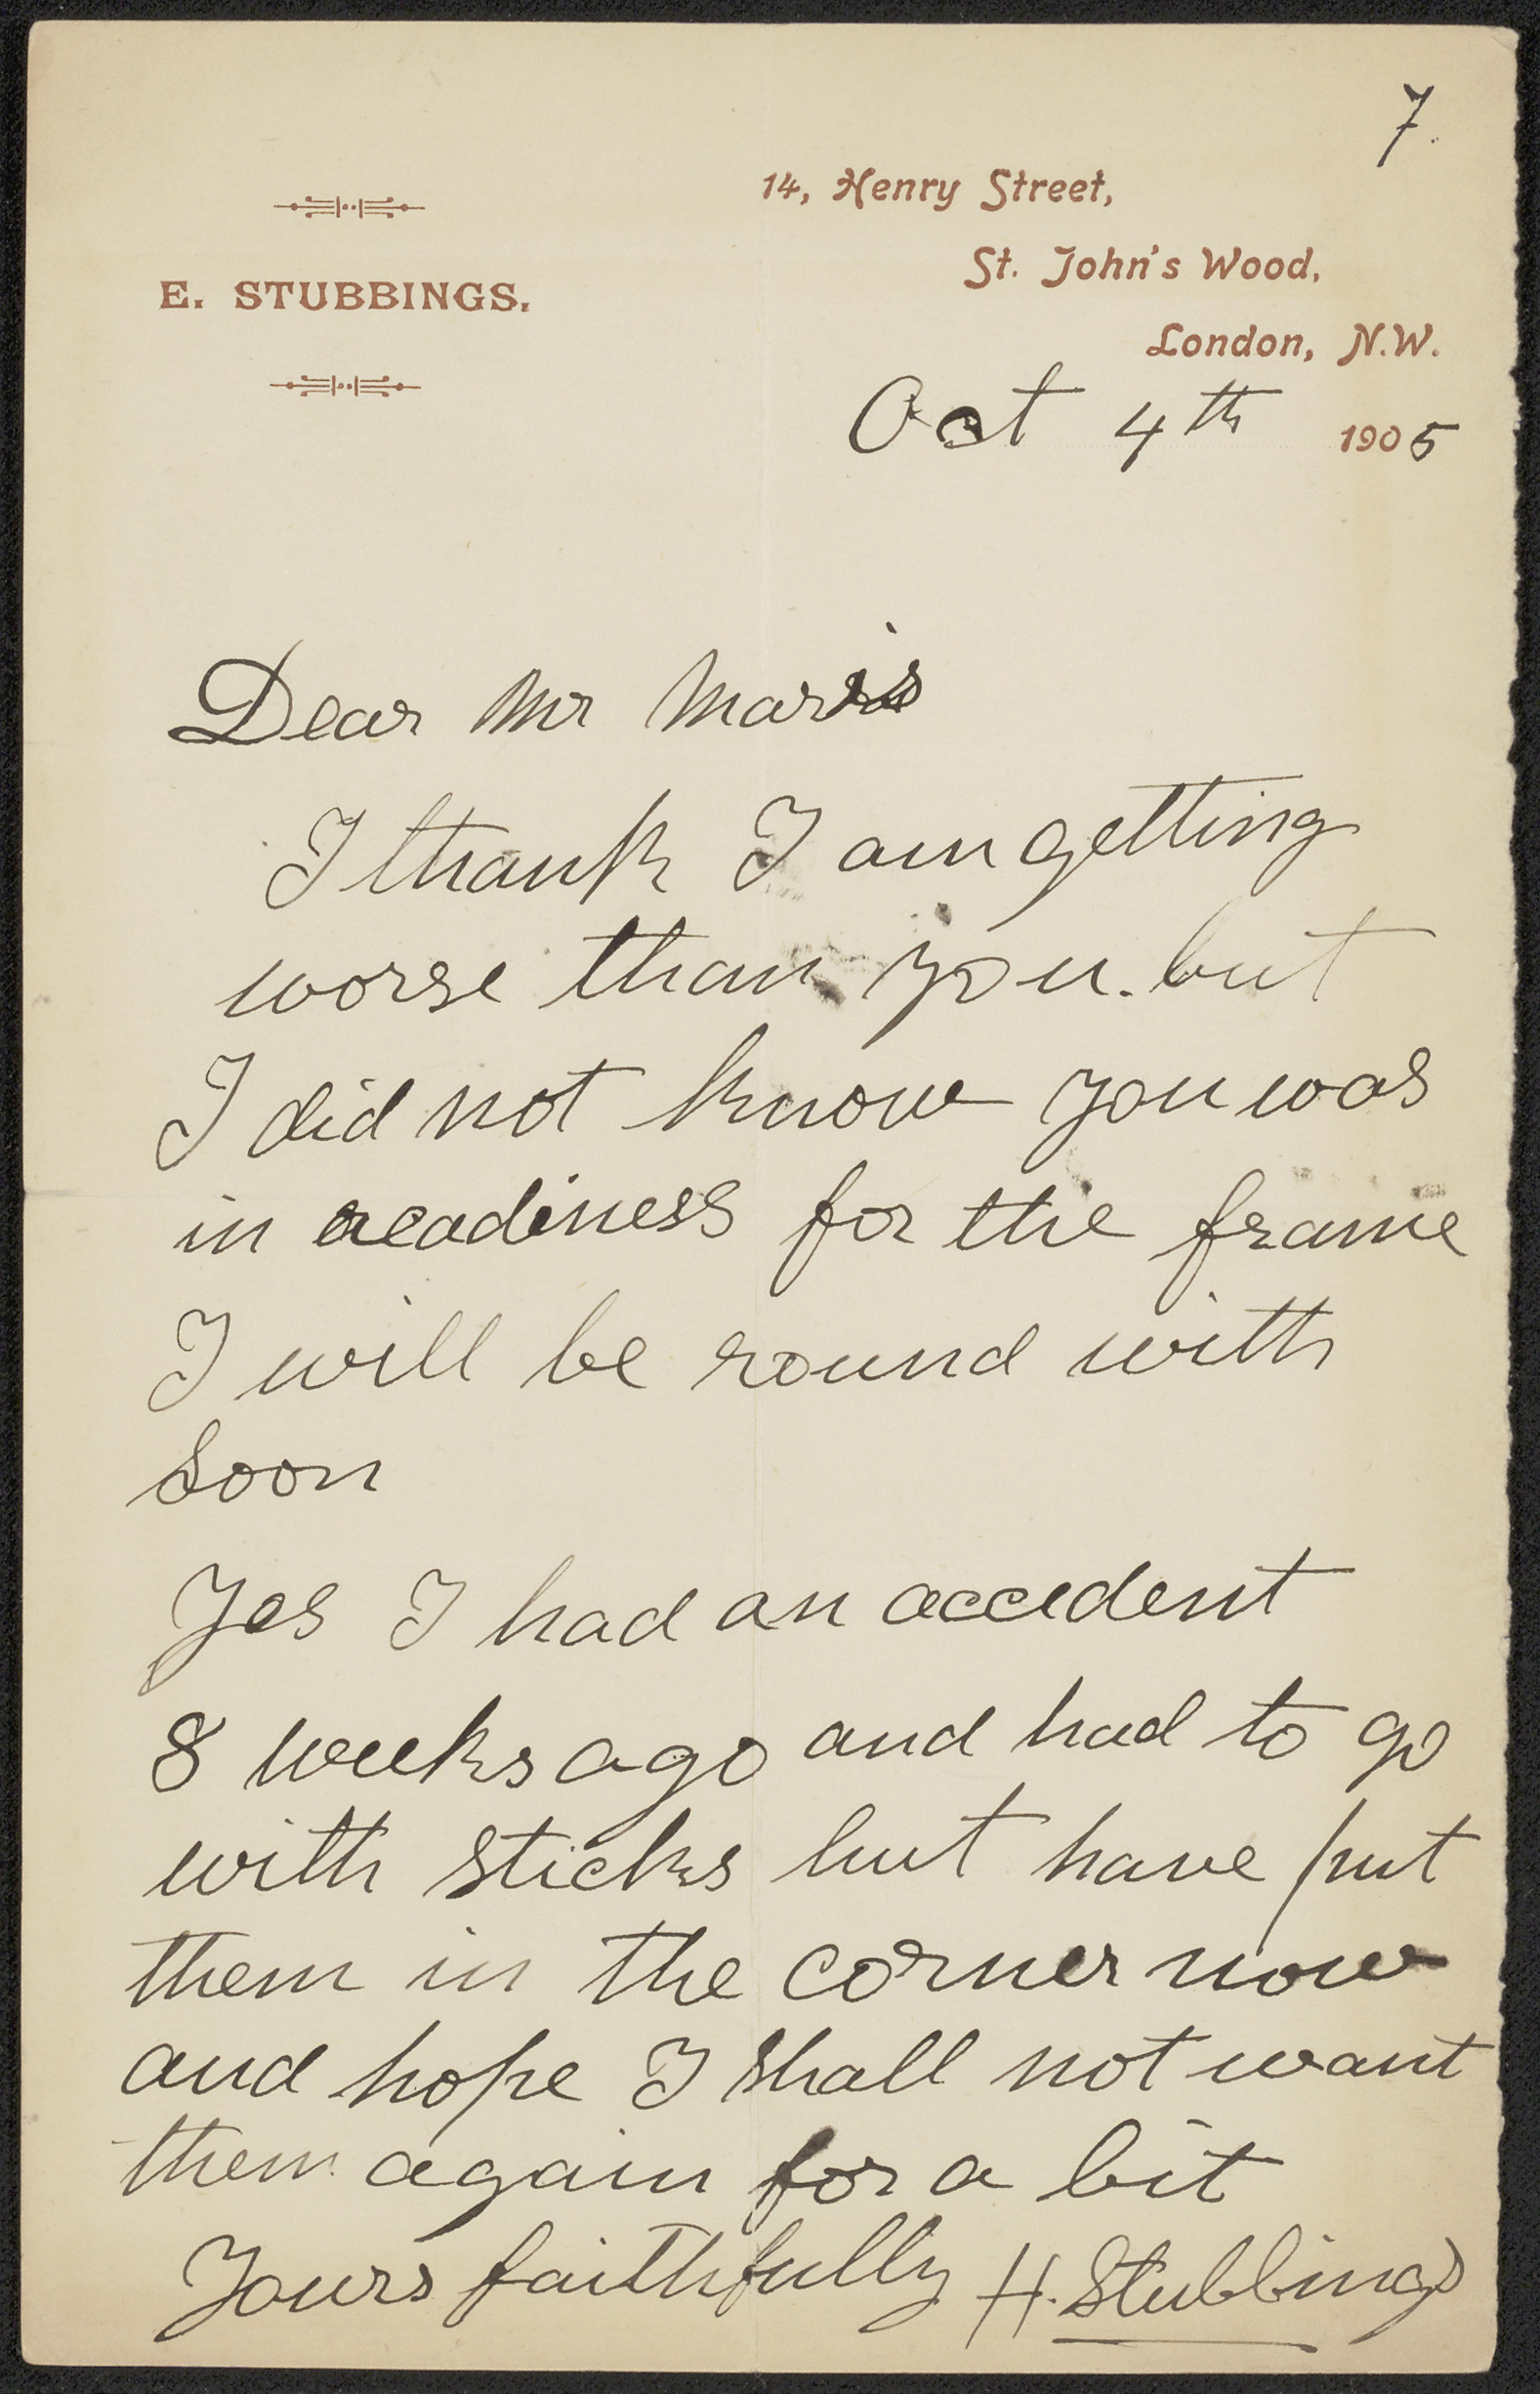 7.
14, Henry Street,
St. John's Wood,
London, N.W.
E. STUBBINGS.
Oct 4th 1905
Dear Mr Maris
I thank I am getting
worse than you. but
I did not know you was
in readiness for the frame
I will be round with
Soon
Yes I had an accident
8 weeks ago and had to go
with sticks but have put
them in the corner now
and hope I shall not want
them again for a bit
Yours faithfully H. Stubbings